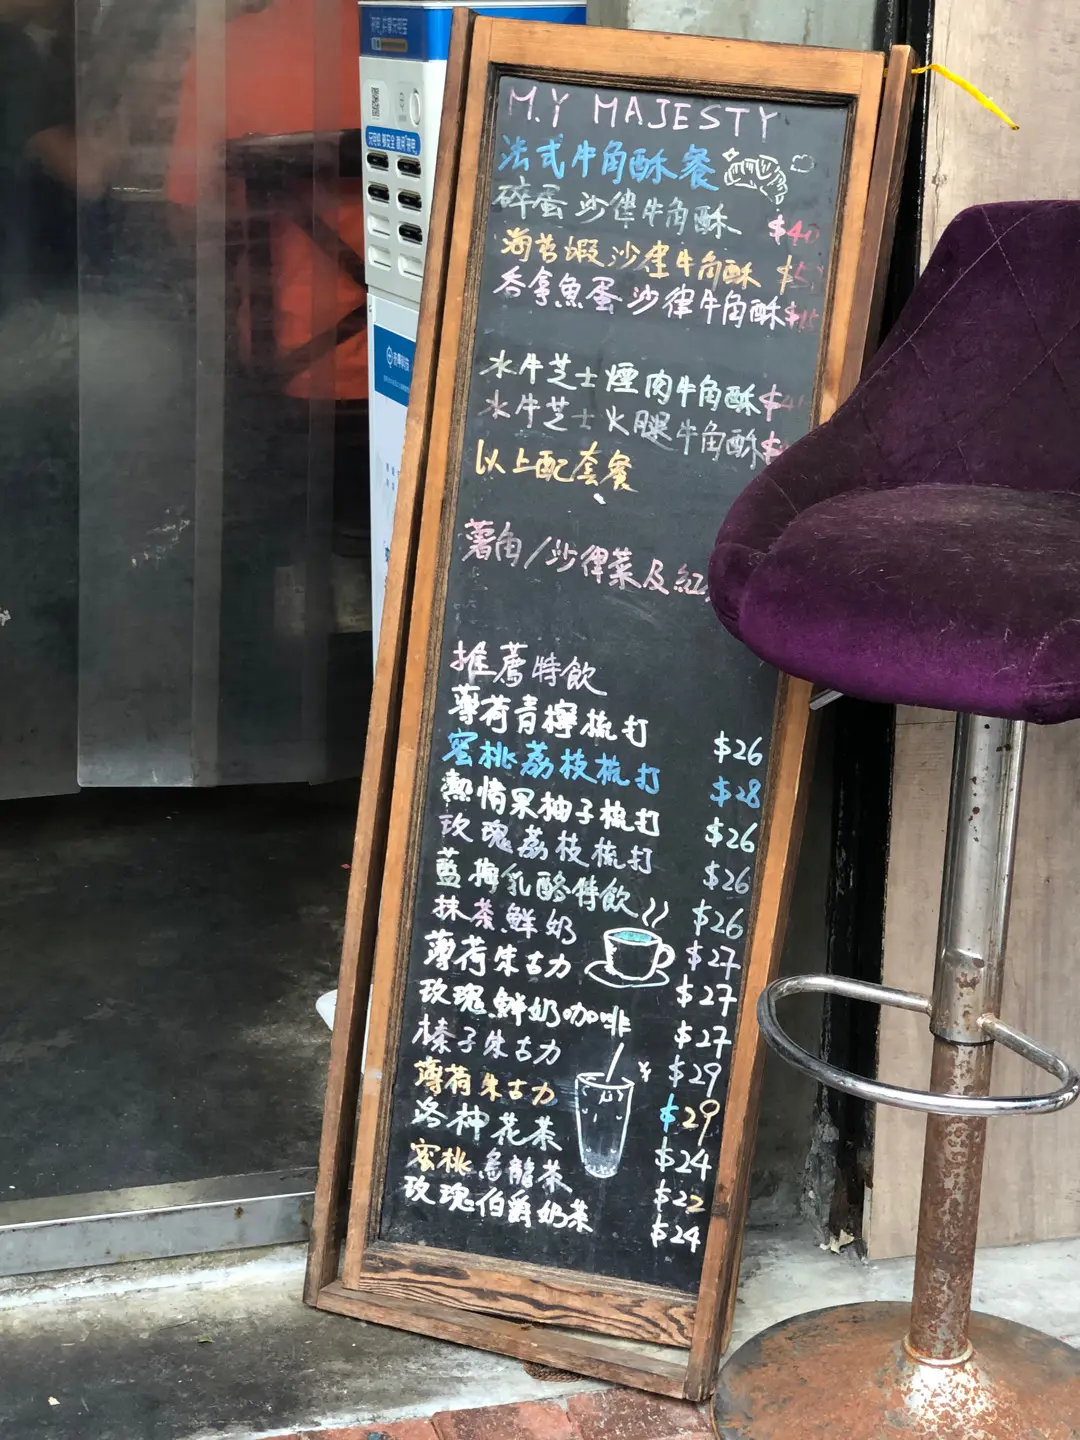 M.Y MAJESTY
法式牛角酥餐
碎蛋沙律牛角酥 $40
海苔蝦沙律牛角酥
吞拿魚蛋沙律牛角酥
水牛芝士煙肉牛角酥
水牛芝士火腿牛角酥
以上配套餐
薯角/沙律菜及紅
推薦特飲
薄荷青檸梳打 $26
蜜桃荔枝梳打 $28
熱情果柚子梳打 $26
玫瑰荔枝梳打 $26
藍莓乳酪特飲 $26
抹茶鮮奶 $27
薄荷朱古力 $27
玫瑰鮮奶咖啡 $27
榛子朱古力 $29
薄荷朱古力 $29
洛神花茶 $24
蜜桃烏龍茶 $22
玫瑰伯爵奶茶 $24